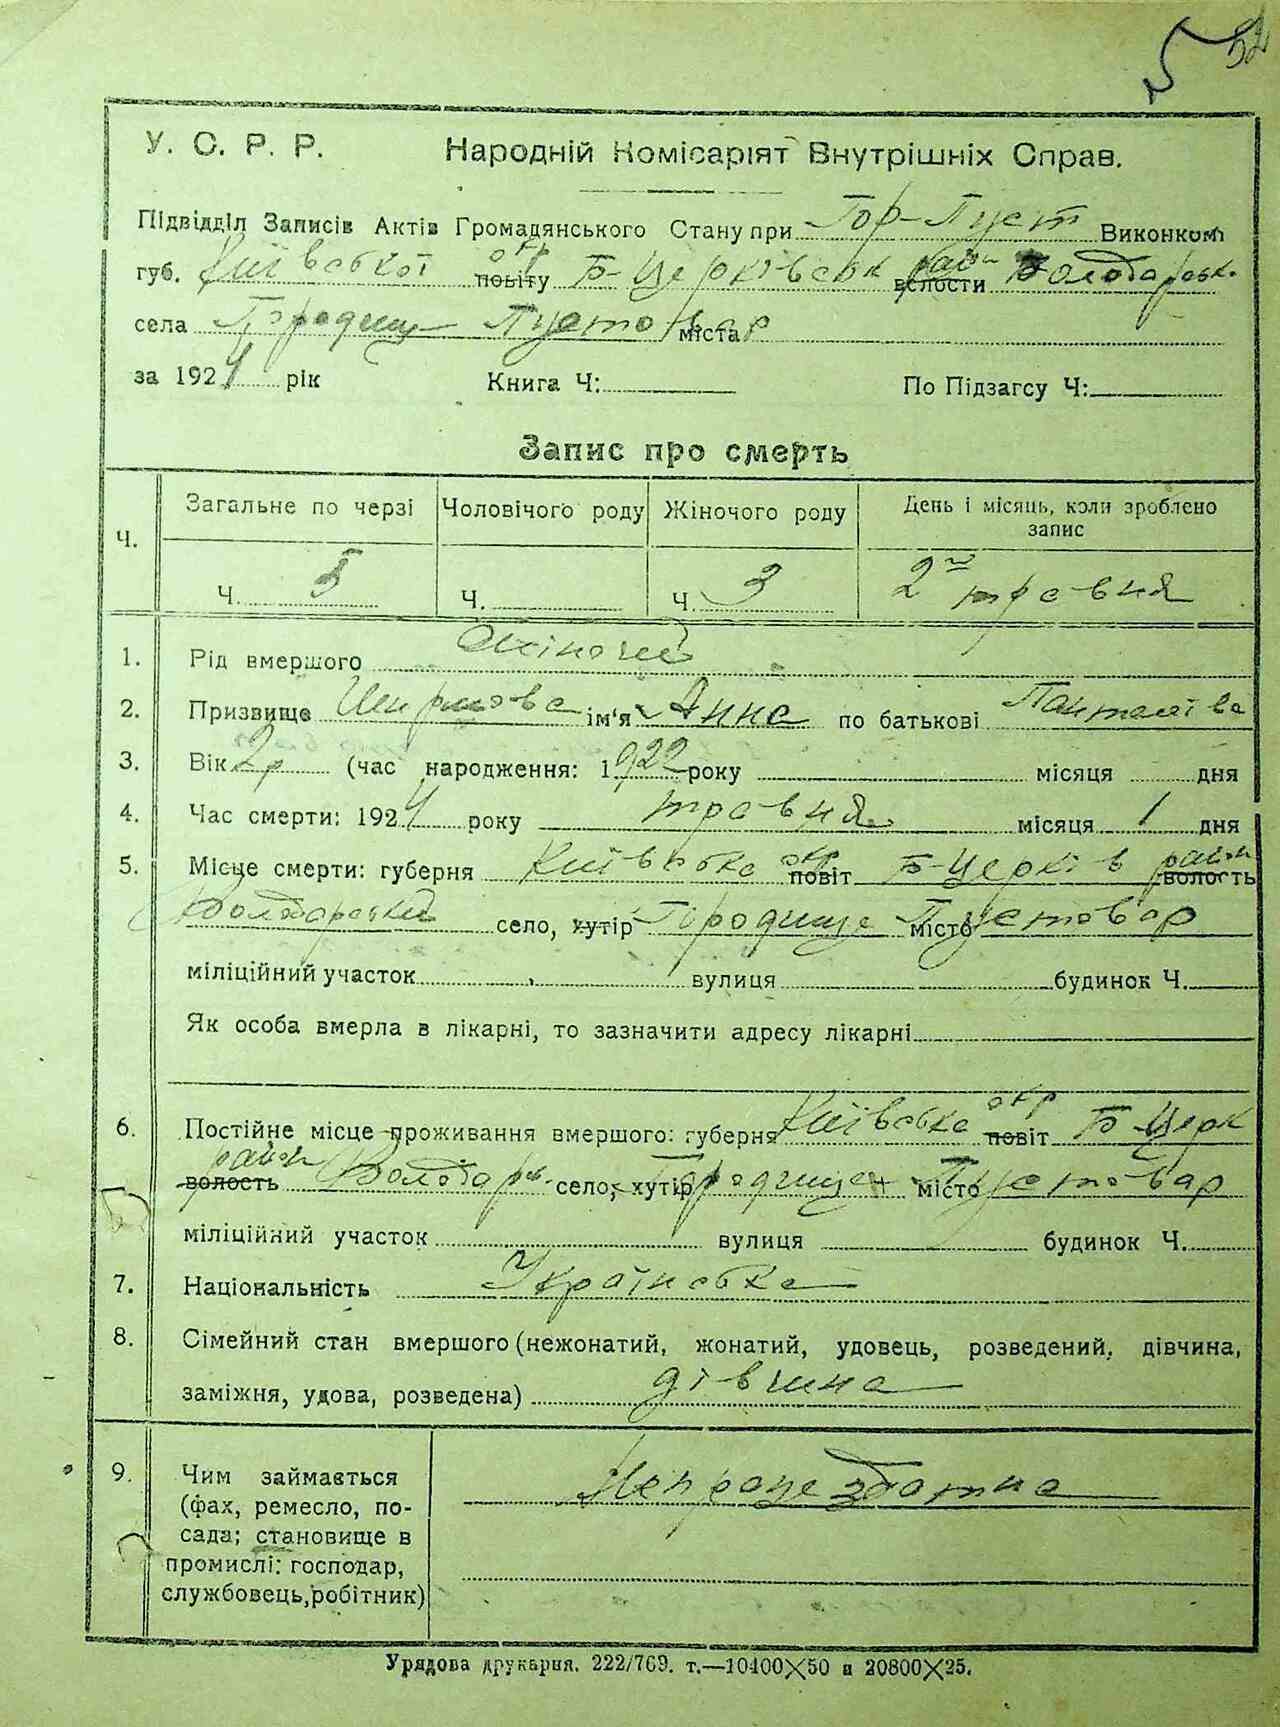 5 52
У. С. Р. Р. Народній Комісаріят Внутрішніх Справ.
Підвідділ Записів Актів Громадянського Стану при Гор-Пуст Виконкомі
губ. Київської повіту окр Б-Церківськ волости рай- Володарськ.
села Городище Пустовар міста
за 1924 рік Книга Ч: По Підзагсу Ч:
Запис про смерть
Ч. Загальне по черзі Чоловічого роду Жіночого роду День і місяць, коли зроблено запис
Ч. 5 Ч. Ч. 3 2го травня
1. Рід вмершого Жіночий
2. Призвище ім'я Анна по батькові
3. Вік 2р (час народження: 1922 року місяця дня
4. Час смерти: 1924 року травня місяця 1 дня
5. Місце смерти: губерня Київська повіт окр Б-Церків волость район
Володарський село, хутір Городище місто Пустовар
міліційний участок вулиця будинок Ч.
Як особа вмерла в лікарні, то зазначити адресу лікарні
6. Постійне місце проживання вмершого: губерня Київська повіт окр Б-Церк
волость район Володарк. село, хутір Городище місто Пустовар
міліційний участок вулиця будинок Ч.
7. Національність Українська
8. Сімейний стан вмершого (нежонатий, жонатий, удовець, розведений, дівчина,
заміжня, удова, розведена) дівчина
9. Чим займається Непрацездатна
(фах, ремесло, по-
сада; становище в
промислі: господар,
службовець, робітник)
Урядова друкарня. 222/769. т.—10400X50 и 20800X25.